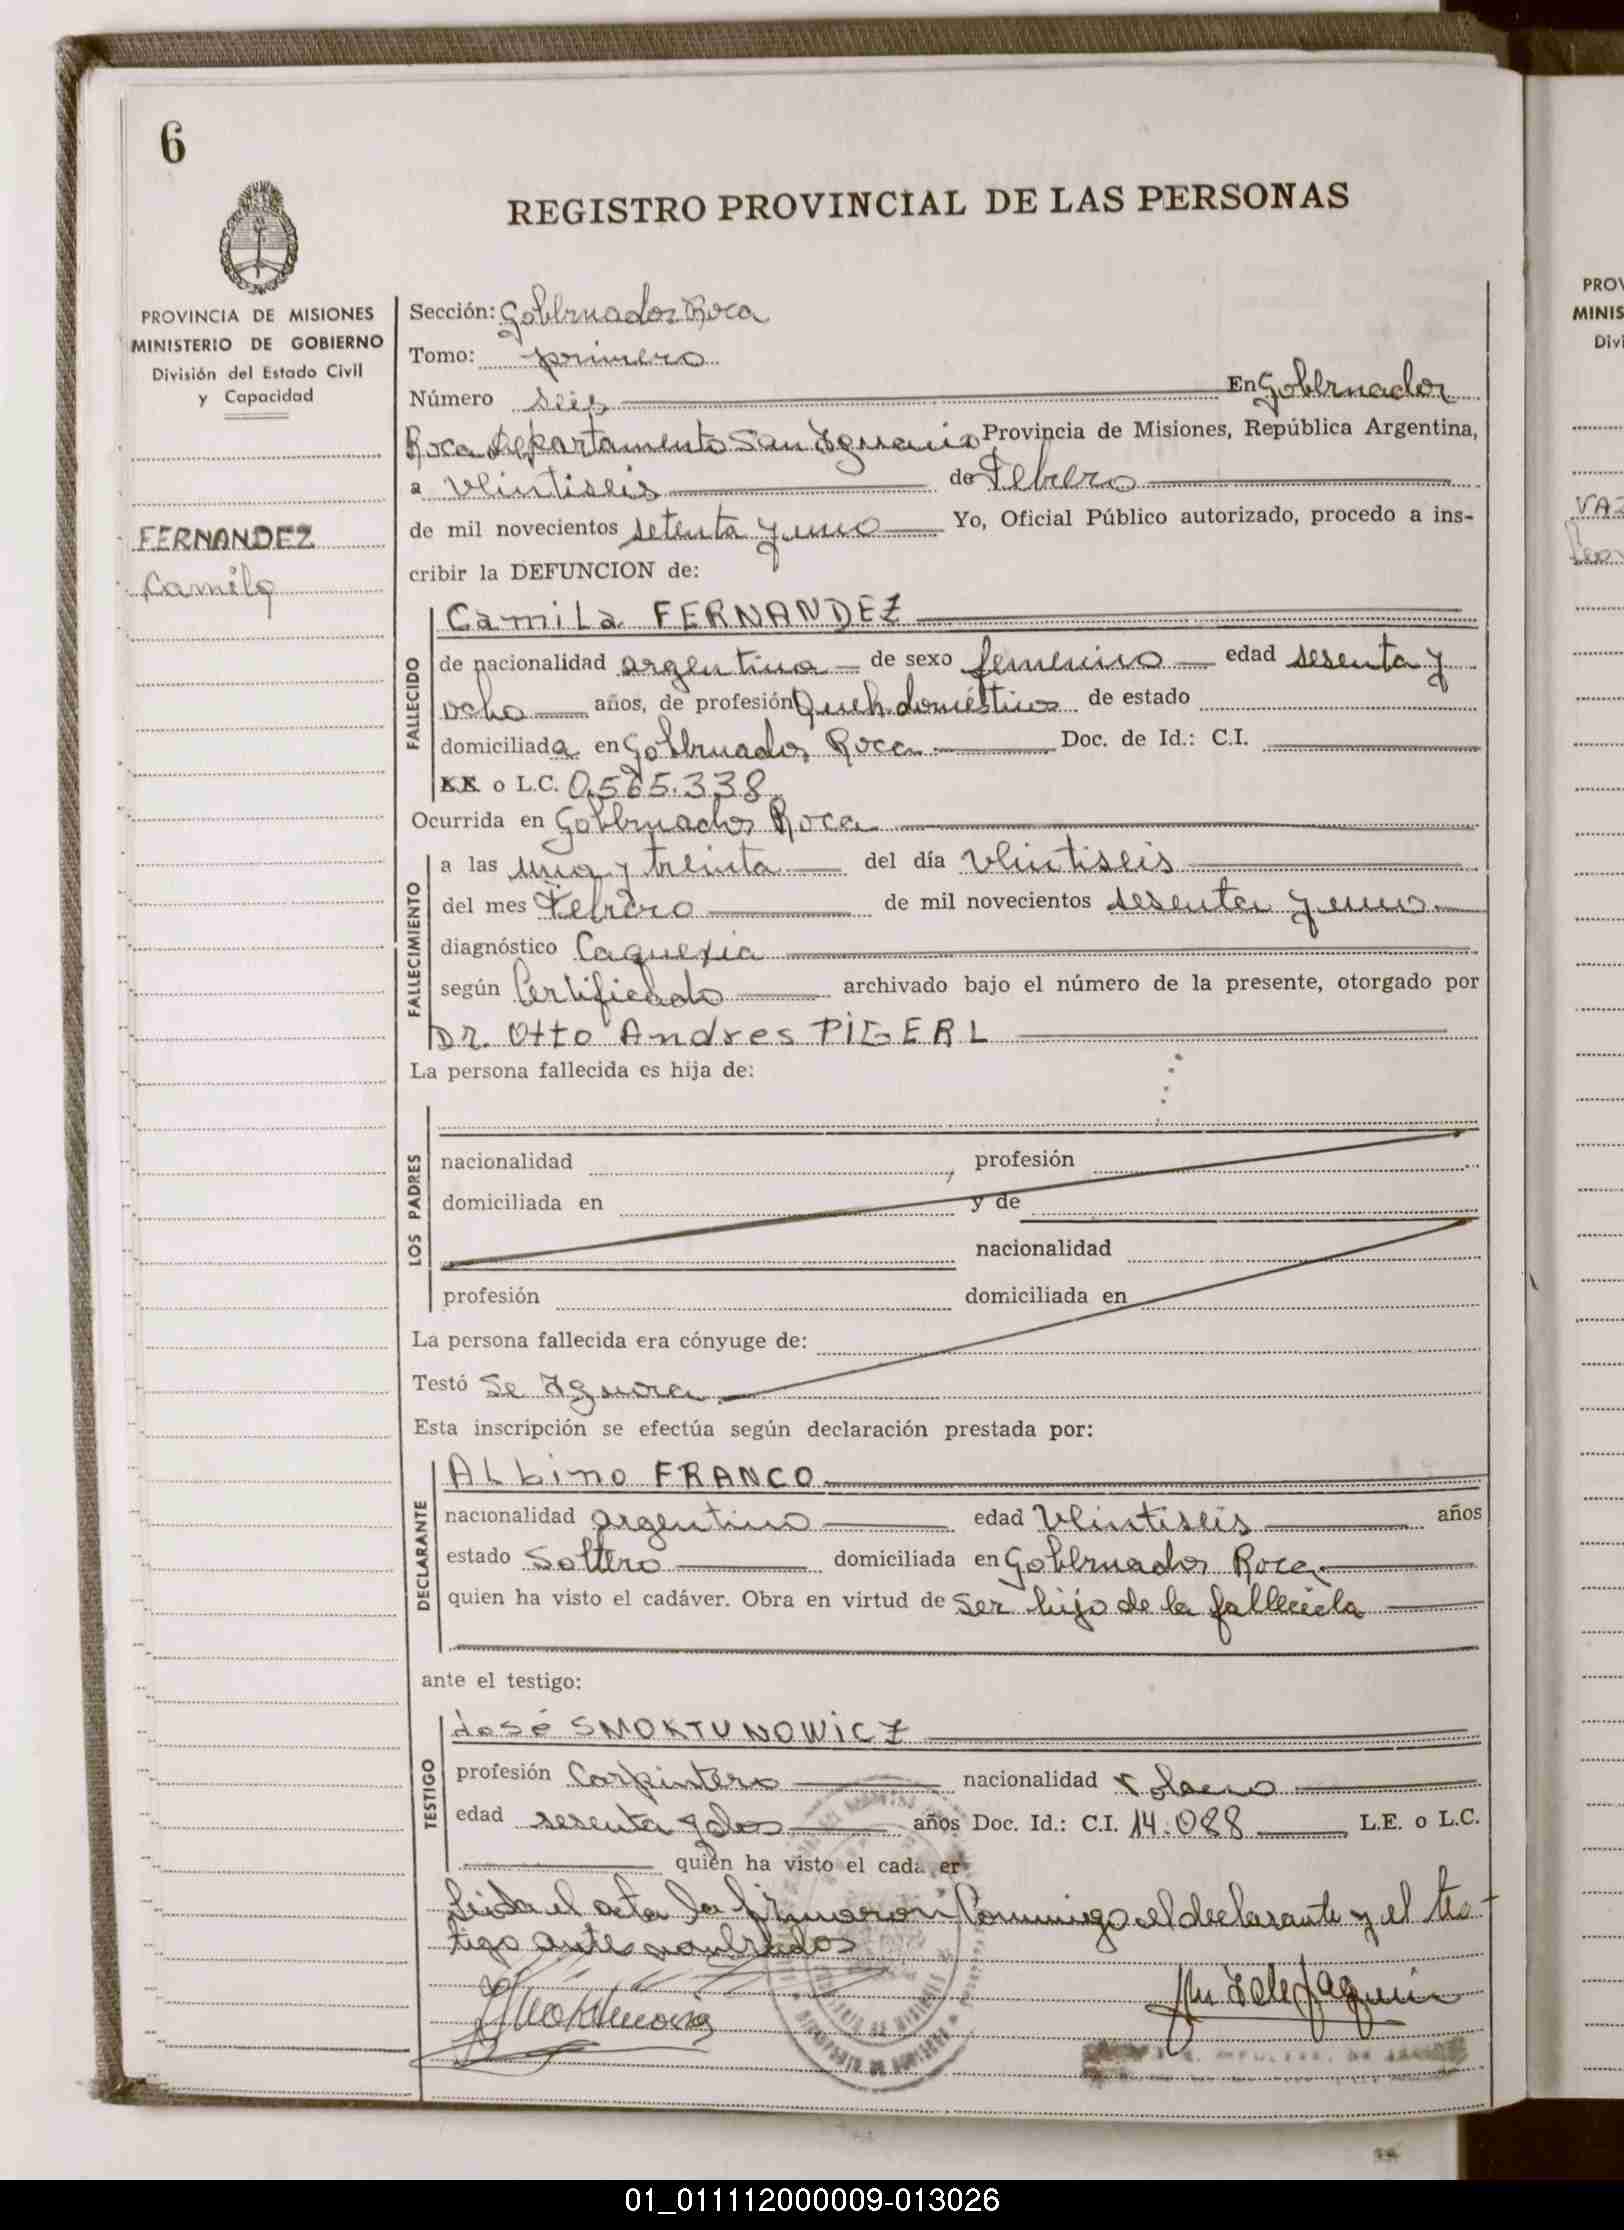 6
REGISTRO PROVINCIAL DE LAS PERSONAS
PROVINCIA DE MISIONES
MINISTERIO DE GOBIERNO
División del Estado Civil
y Capacidad
FERNANDEZ
Camila
Sección: Gobernador Roca
Tomo: primero
Número seis En Gobernador
Roca Departamento San Ignacio Provincia de Misiones, República Argentina,
a veintiseis de Febrero
de mil novecientos setenta y uno Yo, Oficial Público autorizado, procedo a ins-
cribir la DEFUNCION de:
FALLECIDO
Camila FERNANDEZ
de nacionalidad argentina de sexo femenino edad sesenta y
ocho años, de profesión Queh. domésticos de estado
domiciliada en Gobernador Roca Doc. de Id.: C.I.
o L.C. 0.565.338
Ocurrida en Gobernador Roca
FALLECIMIENTO
a las una y treinta del día veintiseis
del mes Febrero de mil novecientos sesenta y uno
diagnóstico Caquexia
según Certificado archivado bajo el número de la presente, otorgado por
Dr. Otto Andres PIGERL
La persona fallecida es hija de:
LOS PADRES
nacionalidad , profesión
domiciliada en y de
nacionalidad
profesión domiciliada en
La persona fallecida era cónyuge de:
Testó Se Ignora
Esta inscripción se efectúa según declaración prestada por:
DECLARANTE
ALbino FRANCO
nacionalidad argentino edad Veintiseis años
estado Soltero domiciliada en Gobernador Roca
quien ha visto el cadáver. Obra en virtud de ser hijo de la fallecida
ante el testigo:
TESTIGO
José SMOKTUNOWICZ
profesión Carpintero nacionalidad Polaco
edad sesenta y dos años Doc. Id.: C.I. 14.088 L.E. o L.C.
quién ha visto el cadáver
Leida el acta la firmaron Conmigo el declarante y el tes-
tigo antes nombrados
PROV
MINIS
Divi
VAZ
01_011112000009-013026